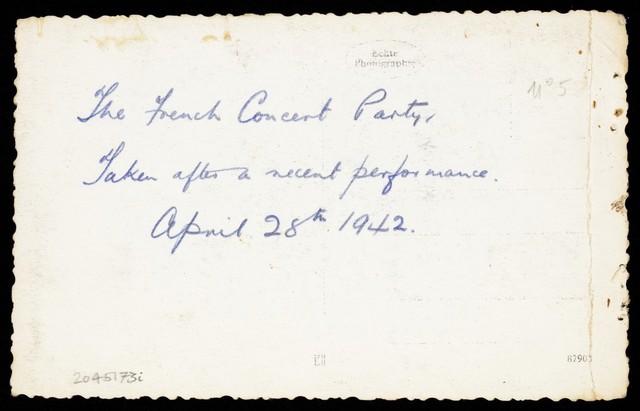 Echte
Photographie
No 5
The French Concert Party,
Taken after a recent performance.
April 28th 1942.
2045173i